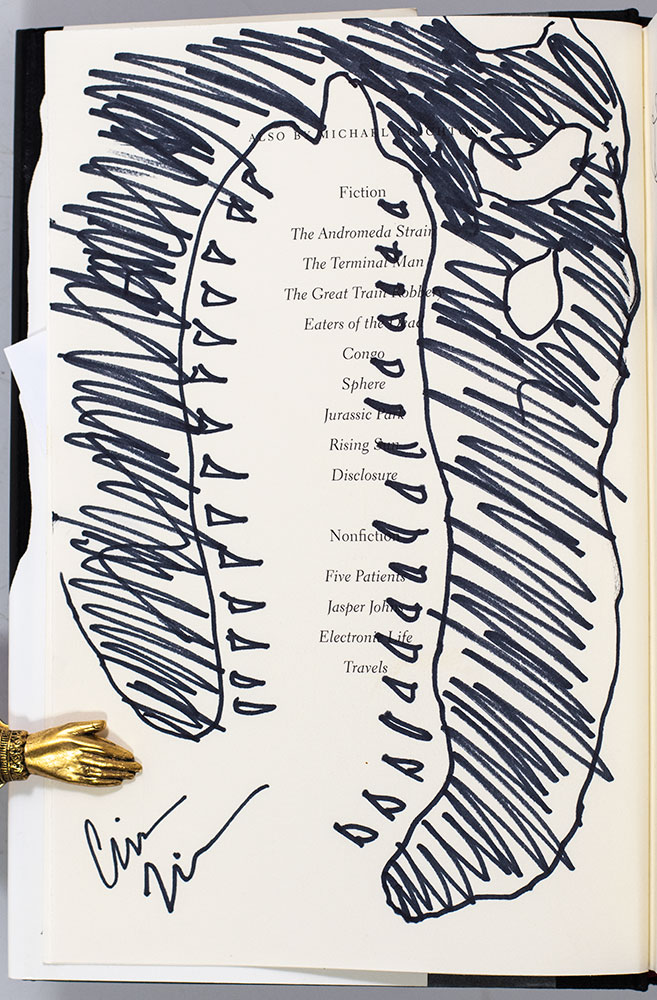 ALSO BY MICHAEL CRICHTON
Fiction
The Andromeda Strain
The Terminal Man
The Great Train Robbery
Eaters of the Dead
Congo
Sphere
Jurassic Park
Rising Sun
Disclosure
Nonfiction
Five Patients
Jasper Johns
Electronic Life
Travels